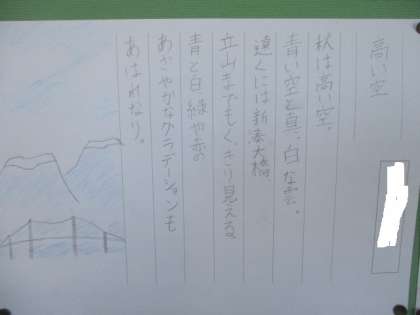 高い空
秋は高い空。
青い空と真っ白な雲。
遠くには新湊大橋、
立山までもくっきり見える。
青と白緑や赤の
あざやかなグラデーションも
あはれなり。